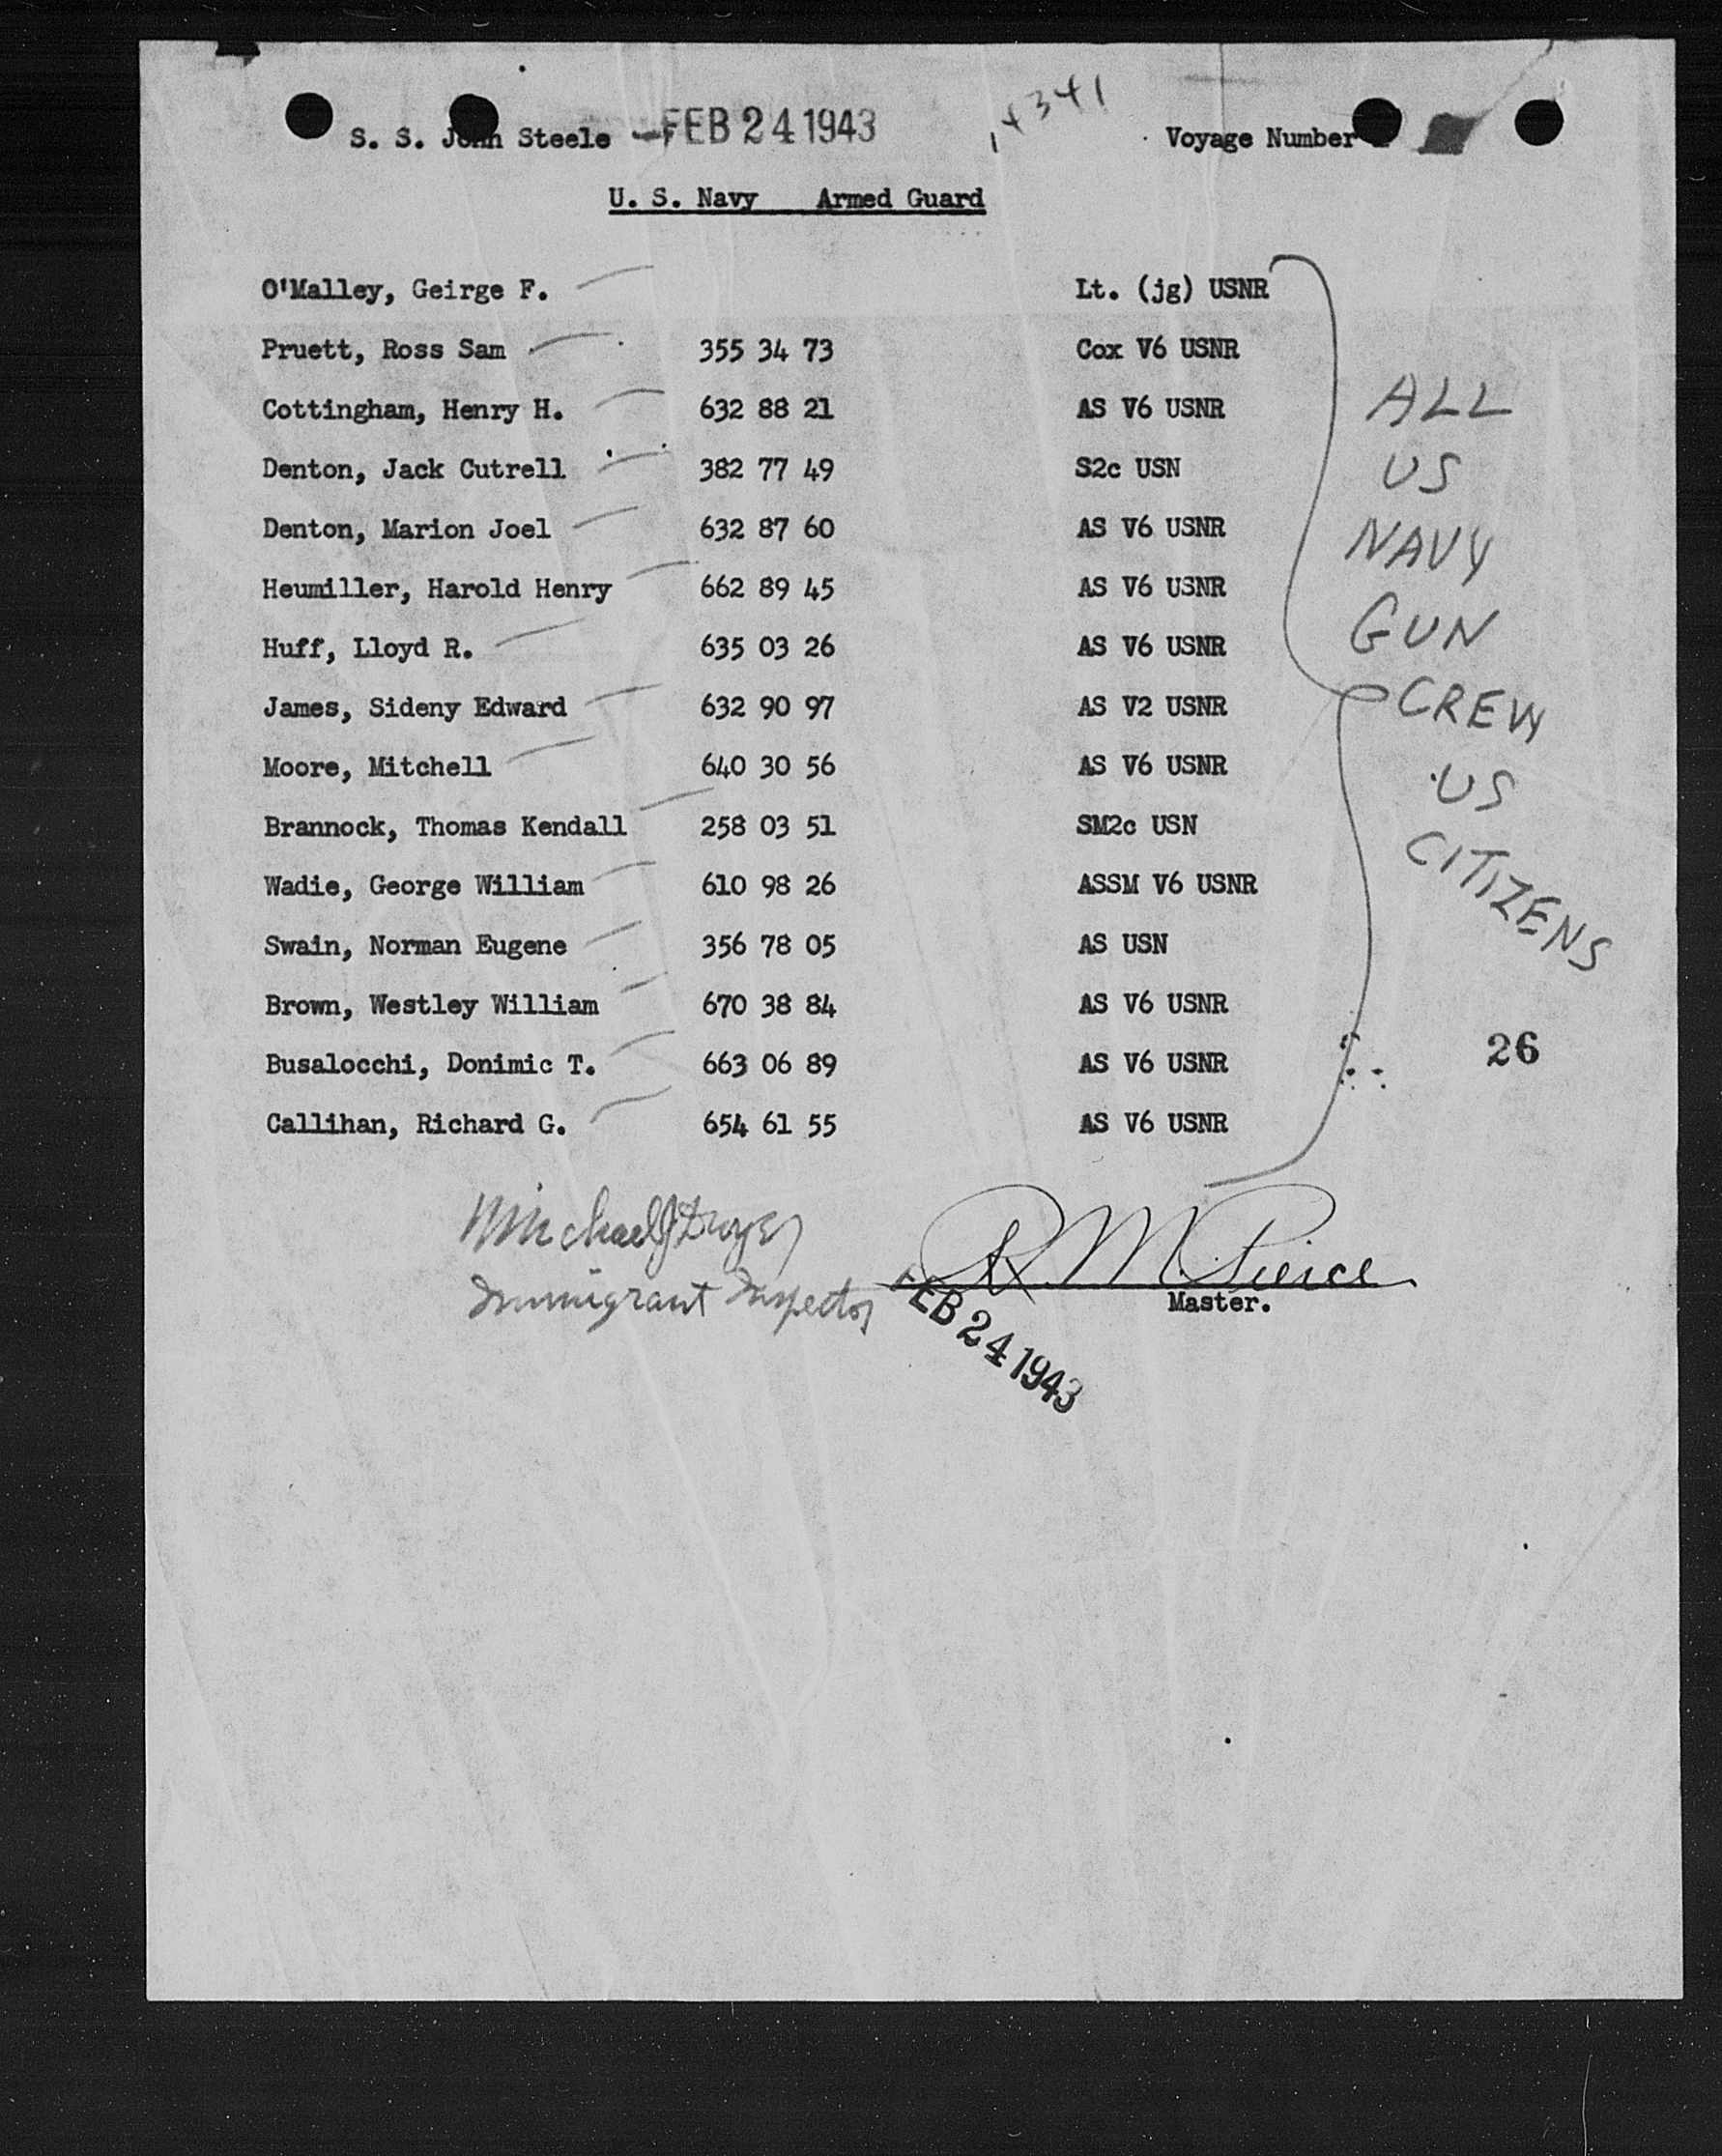 S. S. John Steele - FEB 24 1943 14341 Voyage Number
U. S. Navy Armed Guard
O'Malley, Geirge F. Lt. (jg) USNR
Pruett, Ross Sam 355 34 73 Cox V6 USNR
Cottingham, Henry H. 632 88 21 AS V6 USNR
Denton, Jack Cutrell 382 77 49 S2c USN
Denton, Marion Joel 632 87 60 AS V6 USNR
Heumiller, Harold Henry 662 89 45 AS V6 USNR
Huff, Lloyd R. 635 03 26 AS V6 USNR
James, Sideny Edward 632 90 97 AS V2 USNR
Moore, Mitchell 640 30 56 AS V6 USNR
Brannock, Thomas Kendall 258 03 51 SM2c USN
Wadie, George William 610 98 26 ASSM V6 USNR
Swain, Norman Eugene 356 78 05 AS USN
Brown, Westley William 670 38 84 AS V6 USNR
Busalocchi, Donimic T. 663 06 89 AS V6 USNR
Callihan, Richard G. 654 61 55 AS V6 USNR
ALL
US
NAVY
GUN
CREW
US
CITIZENS
26
Michael J Dwyer
Immigrant Inspector
R M Pierce
Master.
FEB 24 1943